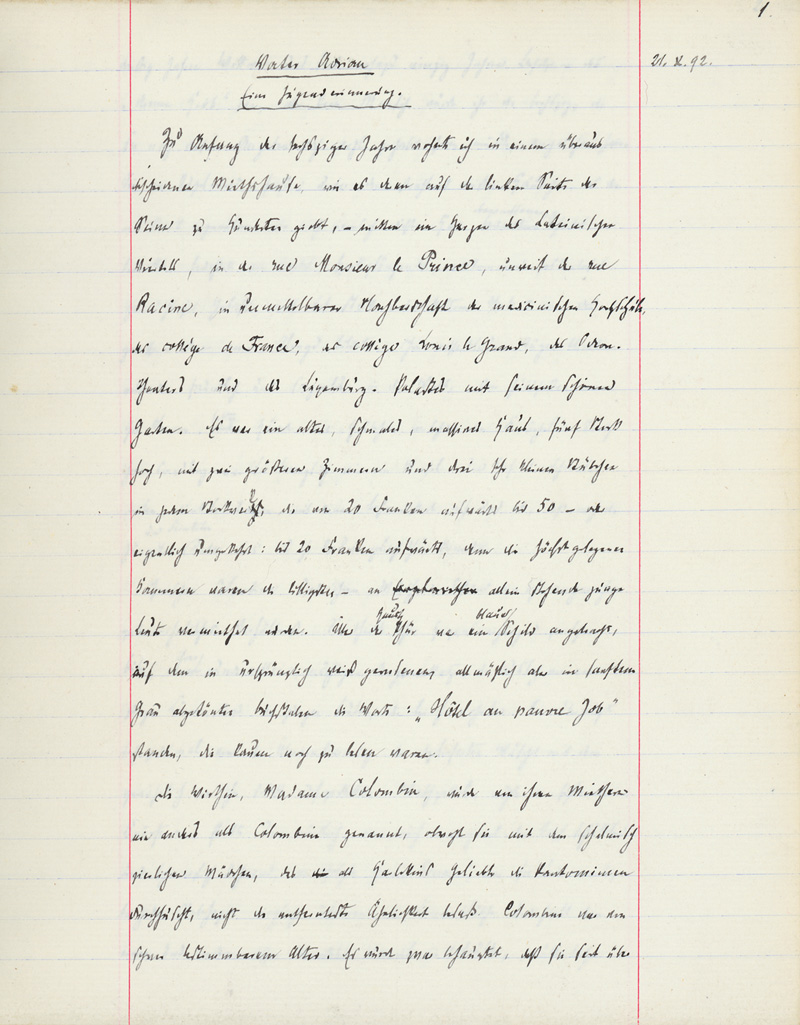 1.
21. X. 92.
Vater Adrian
Eine Jugenderinnerung.
Zu Anfang der sechsziger Jahre wohnte ich in einem überaus
bescheidenen Miethshause, wie es deren auf der linken Seite der
Seine zu Hunderten giebt, – mitten im Herzen des Lateinischen
Viertels, in der rue Monsieur le Prince, unweit der rue
Racine, in unmittelbarer Nachbarschaft der medicinischen Hochschule,
des collége de France, des collége Louis le Grand, des Odeon-
theaters und des Luxemburg-Palastes mit seinem schönen
Garten. Es war ein altes, schmales, massives Haus, fünf Stock
hoch, mit zwei größeren Zimmern und drei sehr kleinen Stübchen
in jedem Stockwerk, die von 20 Franken aufwärts bis 50 – oder
eigentlich umgekehrt: bis 20 Franken aufwärts, denn die höchst gelegenen
Kammern waren die billigsten – an allein stehende junge
Leute vermiethet wurden. Über der Hausthür war ein blaues Schild angebracht,
auf dem in ursprünglich weiß gewesenen, allmählich aber in sanftem
Grau abgetönten Buchstaben die Worte: „Hôtel au pauvre Job"
standen, die kaum noch zu lesen waren.
Die Wirthin, Madame Colombin, wurde von ihren Miethern
nie anders als Colombine genannt, obwohl sie mit dem schelmisch
zierlichen Mädchen, das als Harlekins Geliebte die Pantomimen
durchhuscht, nicht die entfernteste Ähnlichkeit besaß. Colombine war von
schwer bestimmbarem Alter. Es wurde zwar behauptet, daß sie seit über